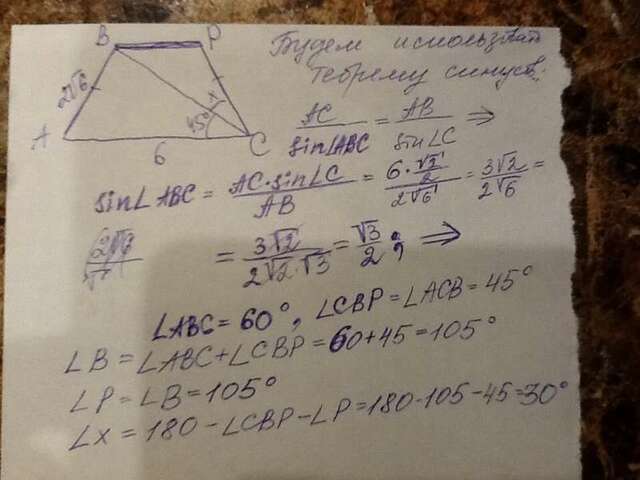 Будем использовать
теорему синусов:
B P
2√6
A 6 45° x C
AC/sin∠ABC = AB/sin∠C ⇒
sin∠ABC = AC·sin∠C/AB = 6·√2/2/2√6 = 3√2/2√6 =
= 3√2/2√2·√3 = √3/2; ⇒
∠ABC = 60°, ∠CBP = ∠ACB = 45°
∠B = ∠ABC + ∠CBP = 60 + 45 = 105°
∠P = ∠B = 105°
∠x = 180 - ∠CBP - ∠P = 180 - 105 - 45 = 30°